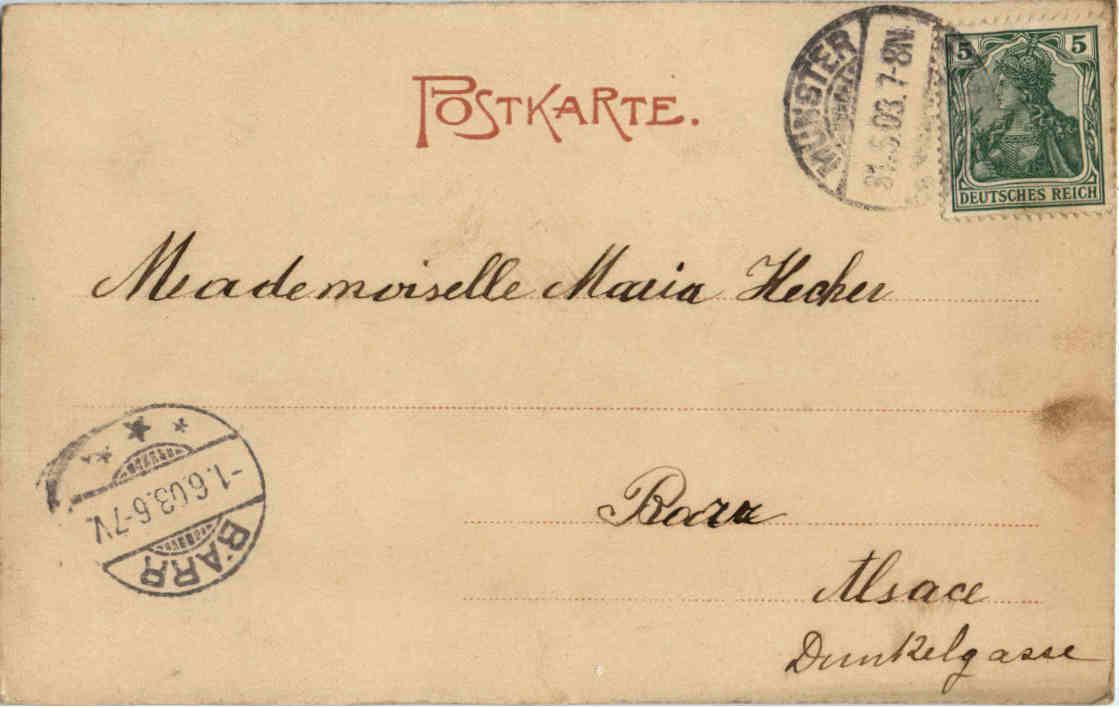 POSTKARTE.
MÜNSTER
31.5.03.7-8N.
5 5
DEUTSCHES REICH
Meademoiselle Maria Hecker
-1.6.03.6-7V.
BARR
Barr
Alsace
Dunkelgasse